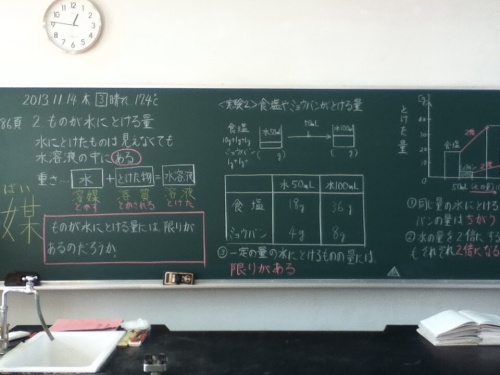 2013.11.14 木 3 晴れ 17.4℃
86頁 2. ものが水にとける量
水にとけたものは見えなくても
水溶液の中にある
重さ 水 + とけた物 = 水溶液
溶媒 溶質 溶液
とかす とかされる とけた
ばい
媒
ものが水にとける量には限りが
あるのだろうか。
<実験2> 食塩やミョウバンがとける量
食塩
ミョウバン
水50mL
50mL
水100mL
( g)
( g)
水50mL 水100mL
食塩 18g 36g
ミョウバン 4g 8g
③ 一定の量の水にとけるものの量には
限りがある
(g)
とけた量
食塩
2倍
2倍
50mL
① 同じ量の水にとける
バンの量はちがう
② 水の量を2倍にする
もそれぞれ2倍になる